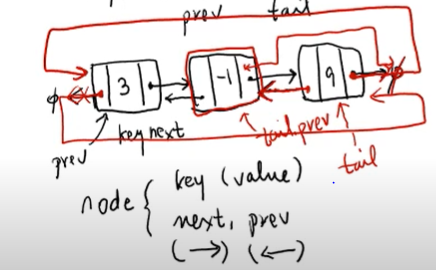 prev tail
φ 3 -1 9 φ
key next
prev
tail.prev
tail
node { key (value)
next, prev
(→) (←)